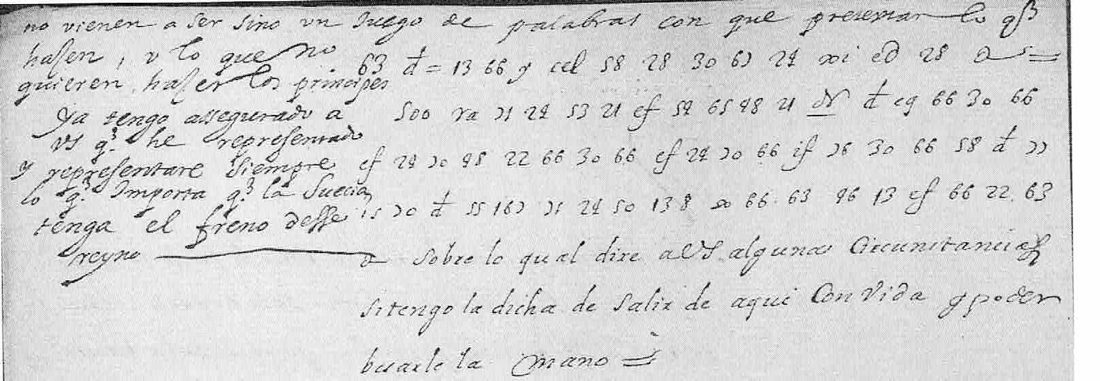 no vienen a ser sino vn Juego de palabras con que presentar lo q̃
hasen, y lo que no
quieren, haser los principes
63 đ = 13 66 y cel 58 28 30 63 24 xi ed 28
Ya tengo assegurado a
VS q.ᵉ he representado
y representare siempre
lo q.ᵉ Importa q.ᵉ la Suecia
tenga el freno desse
reyno
500 ra 31 24 53 21 ef 54 65 48 21 đ eg 66 30 66
ef 24 30 48 22 66 30 66 ef 24 30 66 if 36 30 66 58 đ
15 30 đ 55 163 31 24 50 138 66 63 46 13 ef 66 22 63
Sobre lo qual dire a VS algunas Circunstancias
si tengo la dicha de salir de aqui Con Vida y poder
la mano =